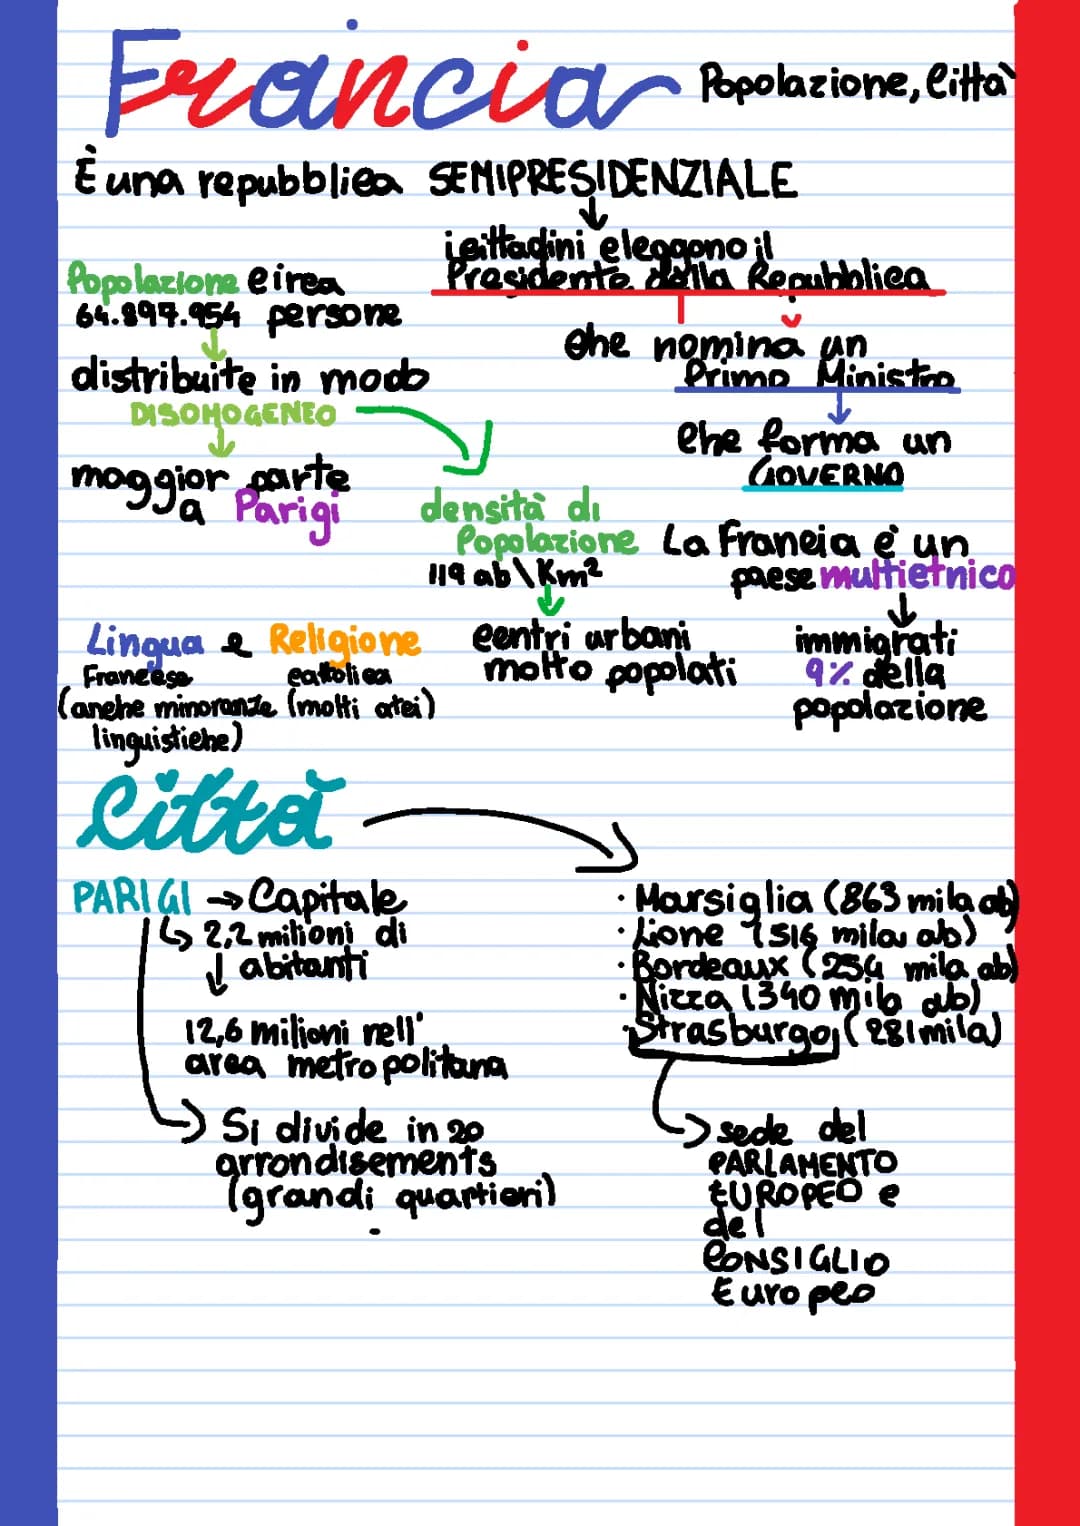 Francia
Popolazione, Città
È una repubblica SEMIPRESIDENZIALE
i cittadini eleggono il
Presidente della Repubblica
che nomina un
Primo Ministro
che forma un
GOVERNO
Popolazione circa
64.897.954 persone
distribuite in modo
DISOMOGENEO
maggior parte
a Parigi
densità di
Popolazione
119 ab\Km²
centri urbani
molto popolati
La Francia è un
paese multietnico
immigrati
9% della
popolazione
Lingua e Religione
Francese
(anche minoranze
linguistiche)
cattolica
(molti atei)
Città
PARIGI → Capitale
2,2 milioni di
abitanti
12,6 milioni nell'
area metropolitana
Si divide in 20
arrondisements
(grandi quartieri)
· Marsiglia (863 mila ab)
· Lione (516 mila ab)
· Bordeaux (254 mila ab)
· Nizza (340 mila ab)
· Strasburgo (281mila)
sede del
PARLAMENTO
EUROPEO e
del
CONSIGLIO
Europeo